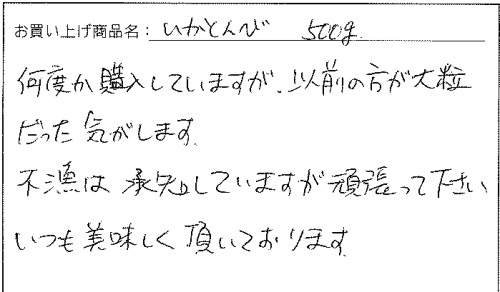 お買い上げ商品名：いかとんび 500g
何度か購入していますが、以前の方が大粒
だった気がします。
不漁は承知していますが頑張って下さい
いつも美味しく頂いております。